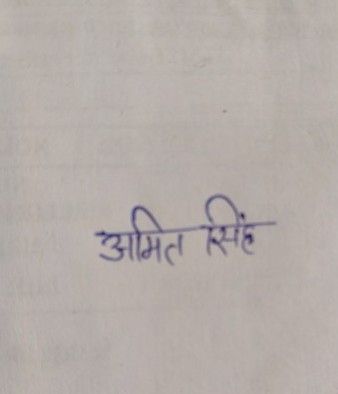 अमित सिंह